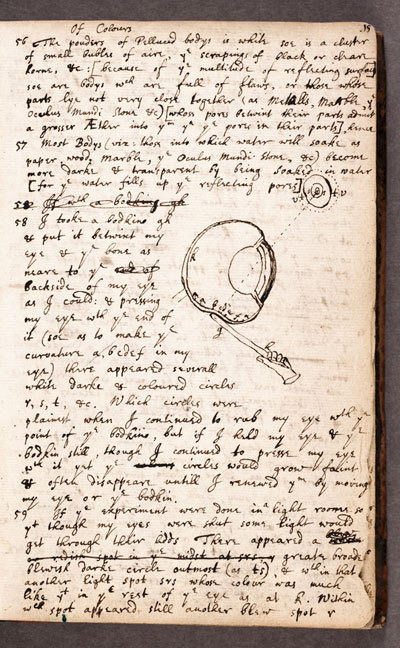 Of Colours
15
56 The pouders of Pellucid bodys is white soe is a cluster
of small bubles of aire, yᵉ scrapings of black or cleare
horne, &c: [because of yᵉ multitude of reflecting surfaces]
soe are bodys wᶜʰ are full of flaws, or those whose
parts lye not very close together (as Metalls, Marble, yᵉ
Oculus Mundi Stone &c) [whose pores betwixt their parts admit
a grosser Æther into yᵐ yⁿ yᵉ pores in their parts], hence
57 Most Bodys (viz: those into which water will soake as
paper, wood, marble, yᵉ Oculus Mundi Stone, &c) become
more darke & transparent by being soaked in water
[for yᵉ water fills up yᵉ reflecting pores]
58 If wᵗʰ a bodkine gh
58 I tooke a bodkine gh
& put it betwixt my
eye & yᵉ bone as
neare to yᵉ end of
backside of my eye
as I could: & pressing
my eye wᵗʰ yᵉ end of
it (soe as to make yᵉ
curvature a, bcdef in my
eye) there appeared severall
white darke & coloured circles
r, s, t, &c. Which circles were
plainest when I continued to rub my eye wᵗʰ yᵉ
point of yᵉ bodkine, but if I held my eye & yᵉ
bodkin still, though I continued to presse my eye
wᵗʰ it yet yᵉ circles would grow faint
& often disappeare untill I renewed yᵐ by moving
my eye or yᵉ bodkin.
59 If yᵉ experiment were done in a light roome so
yᵗ though my eyes were shut some light would
get through their lidds There appeared a
greate broade
blewish darke circle outmost (as ts), & wᵗʰin that
another light spot srs whose colour was much
like yᵗ in yᵉ rest of yᵉ eye as at k. Within
wᶜʰ spot appeared still another blew spot r